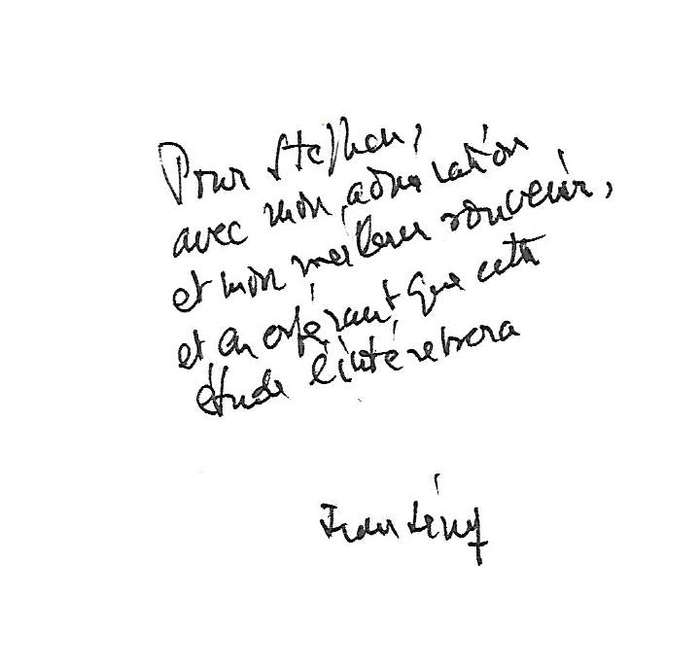 Pour Stephen,
avec mon admiration
et mon meilleur souvenir,
et en espérant que cette
étude l'intéressera
Jean